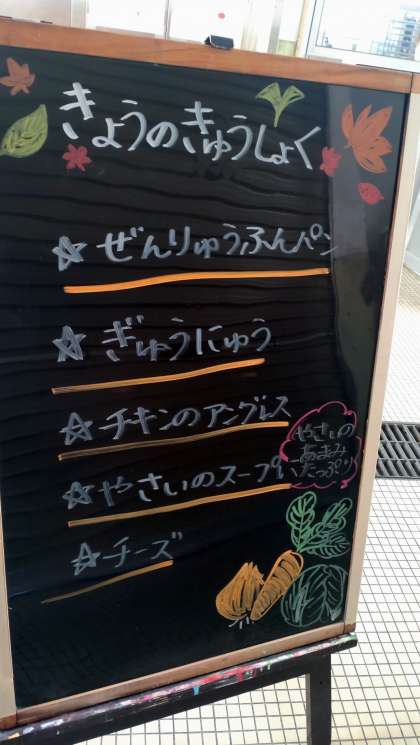 きょうのきゅうしょく
☆ぜんりゅうふんパン
☆ぎゅうにゅう
☆チキンのアングレス
☆やさいのスープに
やさいの
あまみ
たっぷり
☆チーズ